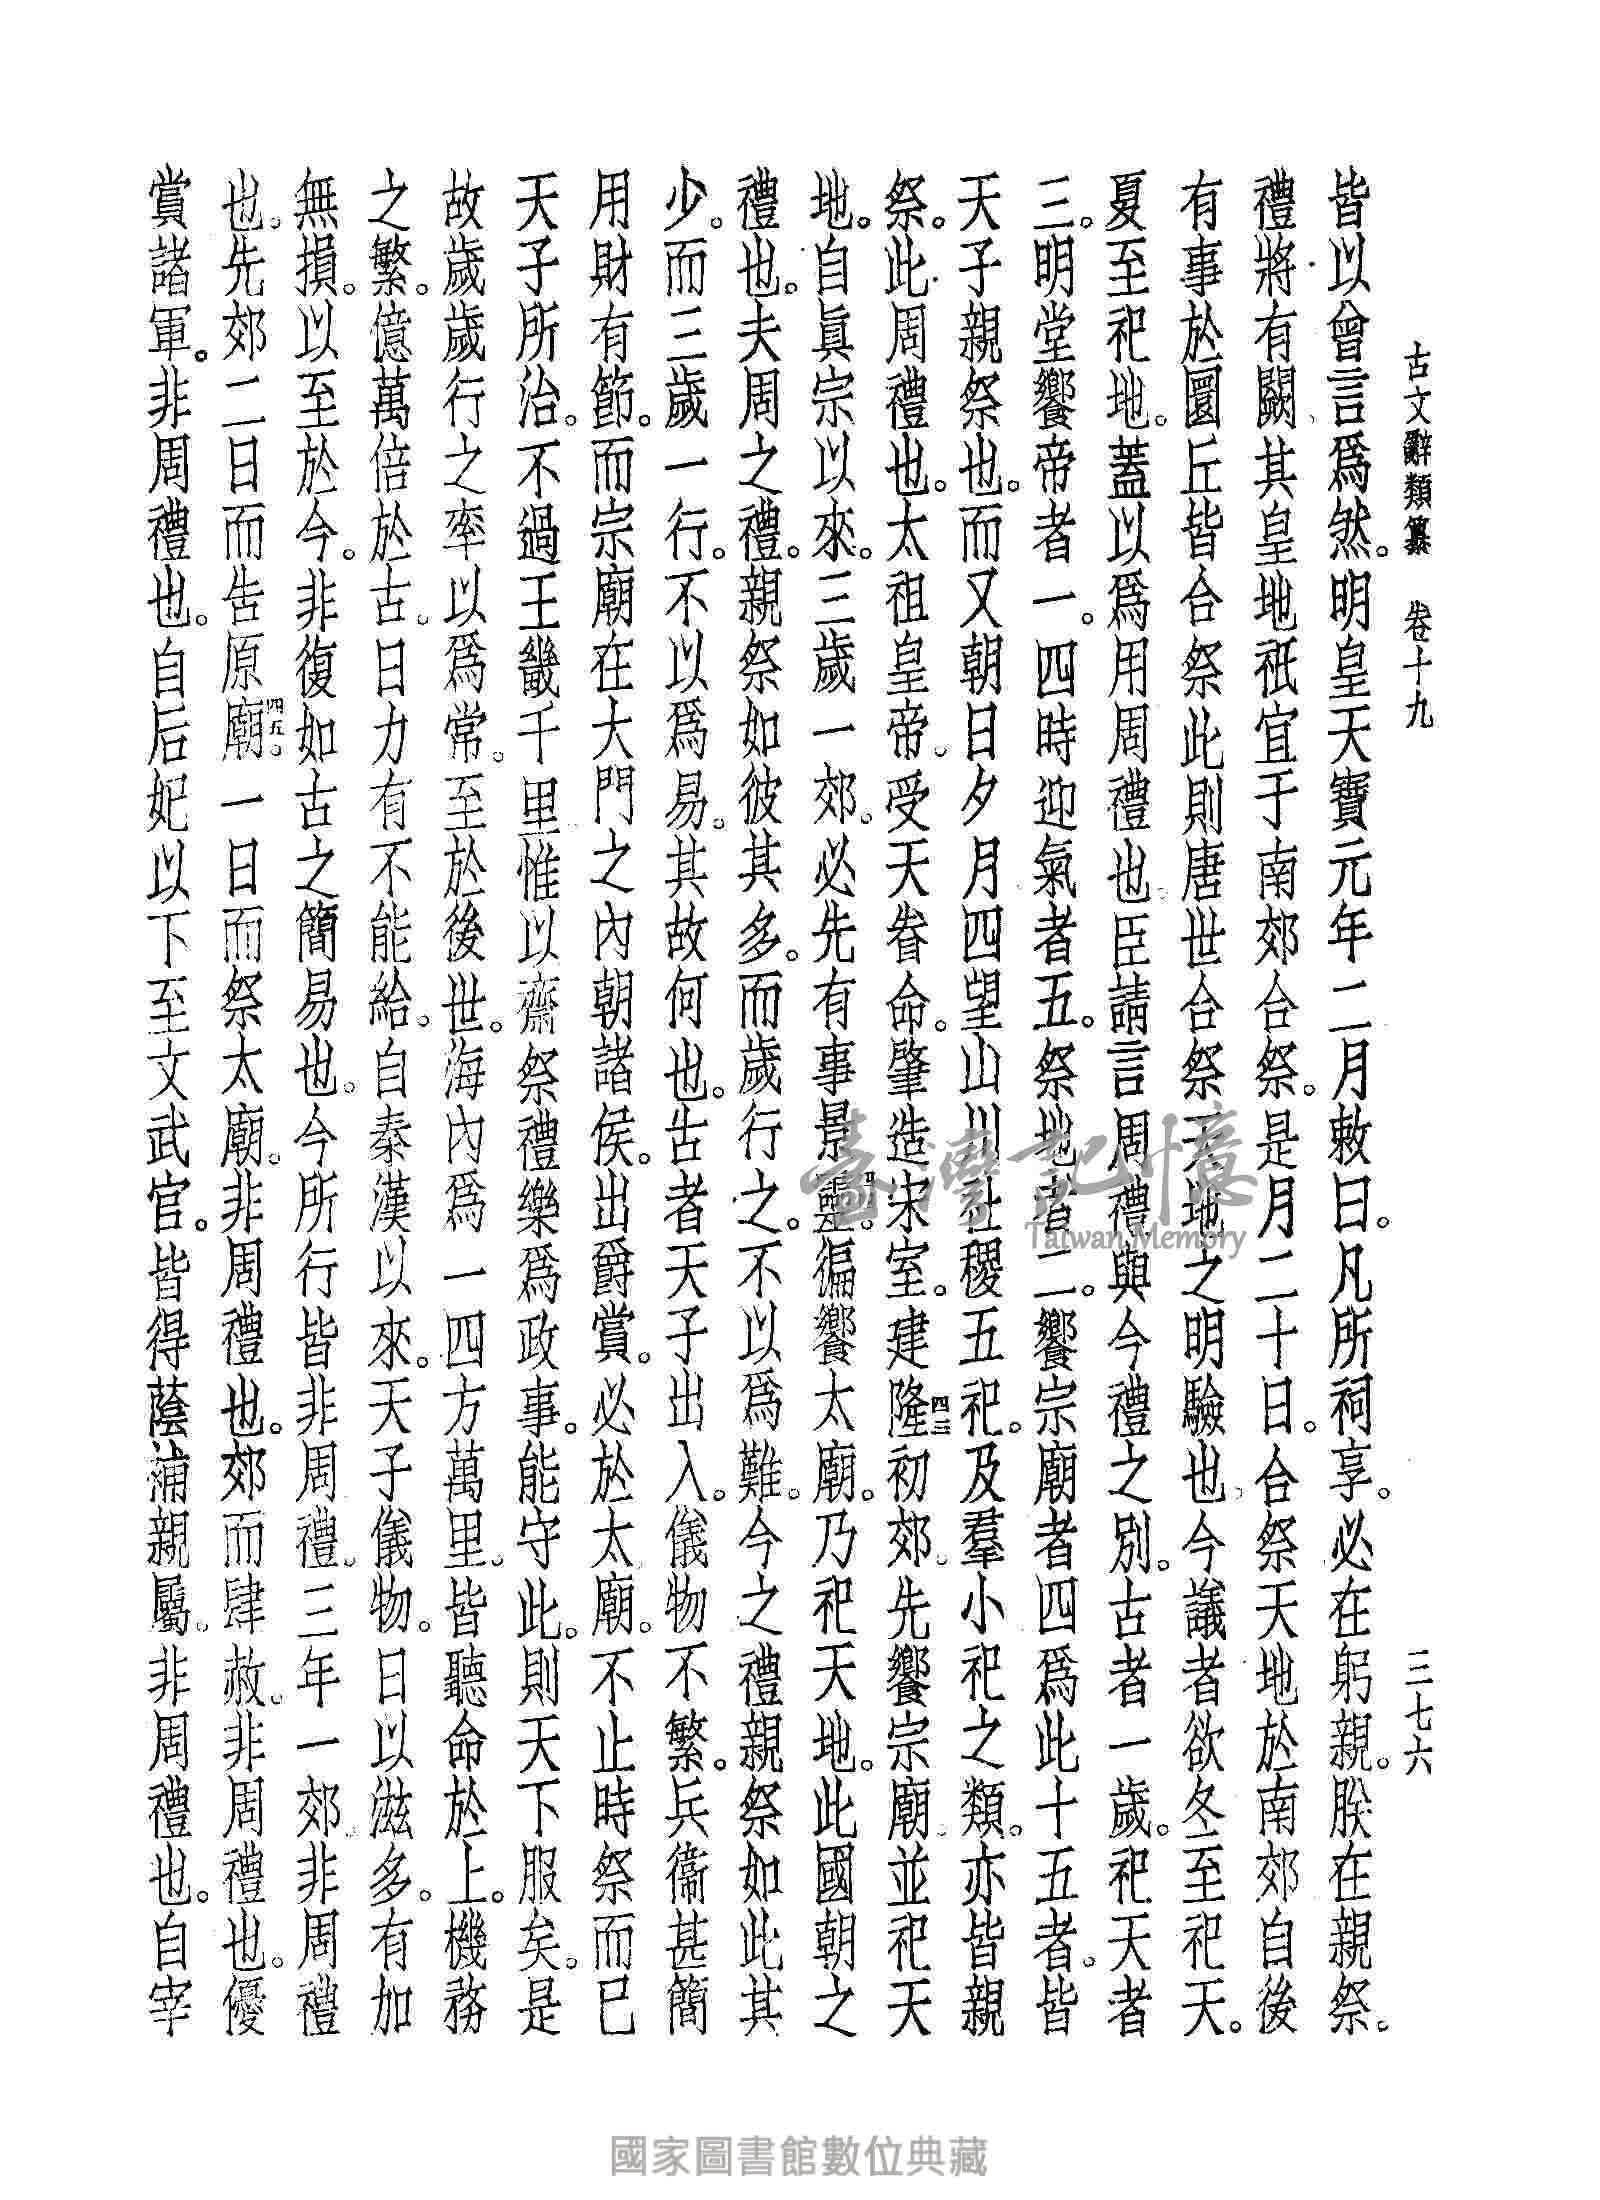 古文辭類纂　卷十九　三七六
皆以曾言爲然。明皇天寶元年二月敕曰。凡所祠享。必在躬親。朕在親祭。
禮將有闕、其皇地祇宜于南郊合祭。是月二十日。合祭天地於南郊自後
有事於圜丘皆合祭此則唐世合祭天地之明驗也、今議者欲冬至祀天。
夏至祀地。蓋以爲用周禮也、臣請言周禮與今禮之別。古者一歲。祀天者
三。明堂饗帝者一。四時迎氣者五。祭地者二。饗宗廟者四爲此十五者。皆
天子親祭也。而又朝日夕月四望山川社稷五祀。及羣小祀之類。亦皆親
祭。此周禮也。太祖皇帝。受天眷命。肇造宋室。建隆四三初郊。先饗宗廟、並祀天
地。自眞宗以來。三歲一郊。必先有事景靈。徧饗太廟。乃祀天地。此國朝之
禮也。夫周之禮。親祭如彼其多。而歲行之。不以爲難。今之禮親祭如此其
少。而三歲一行。不以爲易。其故何也。古者天子出入。儀物不繁。兵衞甚簡
用財有節。而宗廟在大門之內朝諸侯。出爵賞。必於太廟。不止時祭而已
天子所治。不過王畿千里惟以齋祭禮樂爲政事。能守此。則天下服矣。是
故歲歲行之率以爲常。至於後世。海內爲一四方萬里。皆聽命於上。機務
之繁。億萬倍於古。日力有不能給。自秦漢以來。天子儀物。日以滋多。有加
無損。以至於今。非復如古之簡易也。今所行皆非周禮。三年一郊。非周禮
也。先郊二日而告原廟四五。一日而祭太廟。非周禮也。郊而肆赦。非周禮也。優
賞諸軍。非周禮也。自后妃以下至文武官。皆得蔭補親屬。非周禮也。自宰
臺灣記憶
Taiwan Memory
國家圖書館數位典藏